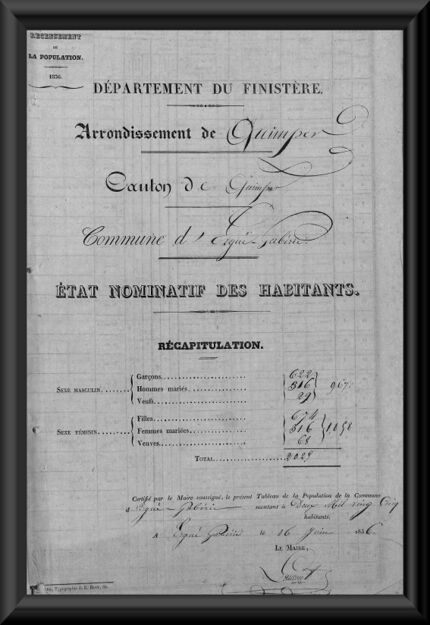 RECENSEMENT
DE
LA POPULATION.
1836
DÉPARTEMENT DU FINISTÈRE.
Arrondissement de Quimper
Canton de Quimper
Commune d'Ergué Gabéric
ÉTAT NOMINATIF DES HABITANTS.
RÉCAPITULATION.
SEXE MASCULIN........
Garçons........................ 622
Hommes mariés.................. 316
Veufs.......................... 29
967
SEXE FÉMININ........
Filles......................... 674
Femmes mariées................. 316
Veuves......................... 68
1058
TOTAL................ 2025
Certifié par le Maire soussigné, le présent Tableau de la Population de la Commune
d'Ergué Gabéric montant à Deux Mil vingt Cinq
habitants.
A Ergué Gabéric le 16 Juin 1836.
LE MAIRE,
Typographie de